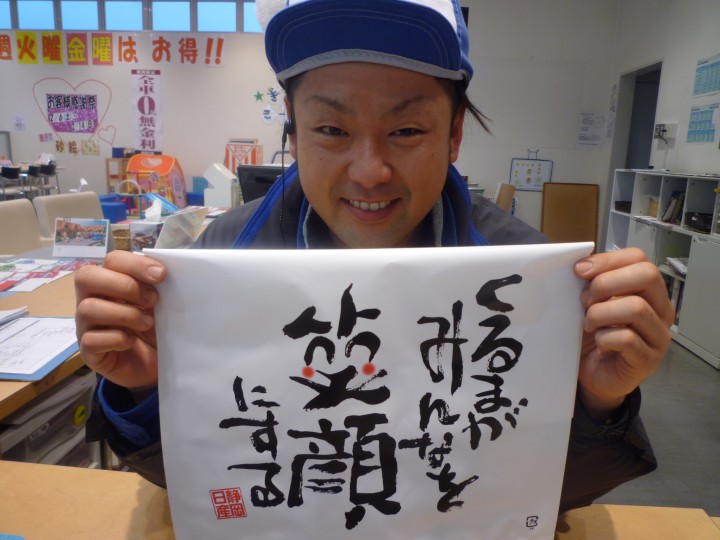 週火曜金曜はお得!!
お客様感謝祭
全車0%無金利
くるまが
みんなを
笑顔
にする
静岡
日産